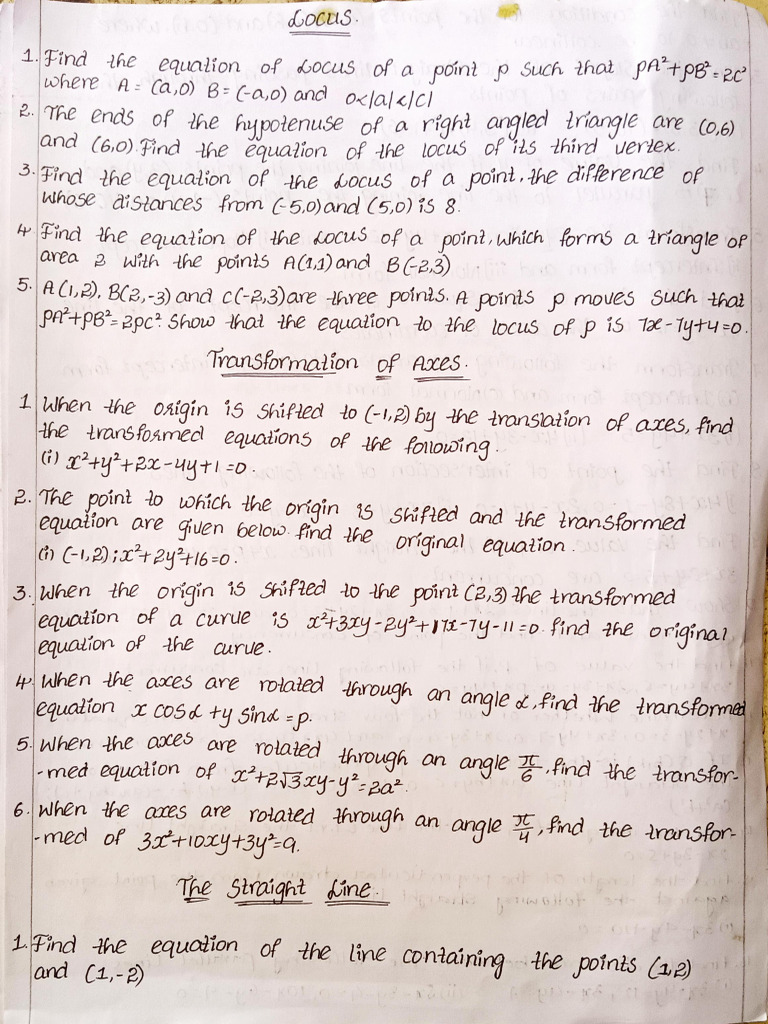 Locus.
1. Find the equation of Locus of a point p such that pA²+pB²=2c²
where A = (a,0) B = (-a,0) and 0<|a|<|c|
2. The ends of the hypotenuse of a right angled triangle are (0,6)
and (6,0). Find the equation of the locus of its third vertex.
3. Find the equation of the Locus of a point, the difference of
whose distances from (-5,0) and (5,0) is 8.
4. Find the equation of the Locus of a point, which forms a triangle of
area 2 with the points A(1,1) and B(-2,3)
5. A(1,2), B(2,-3) and C(-2,3) are three points. A points p moves such that
pA²+pB²=2pc². Show that the equation to the locus of p is 7x-7y+4=0.
Transformation of Axes.
1 When the origin is shifted to (-1,2) by the translation of axes, find
the transformed equations of the following.
(i) x²+y²+2x-4y+1=0.
2. The point to which the origin is shifted and the transformed
equation are given below. find the original equation.
(i) (-1,2); x²+2y²+16=0.
3. When the origin is shifted to the point (2,3) the transformed
equation of a curve is x²+3xy-2y²+17x-7y-11=0. find the original
equation of the curve.
4. When the axes are rotated through an angle α, find the transformed
equation x cosα + y sinα = p.
5. When the axes are rotated through an angle π/6, find the transfor-
-med equation of x²+2√3xy-y²=2a².
6. When the axes are rotated through an angle π/4, find the transfor-
-med of 3x²+10xy+3y²=9.
The Straight Line.
1. Find the equation of the line containing the points (1,2)
and (1,-2)